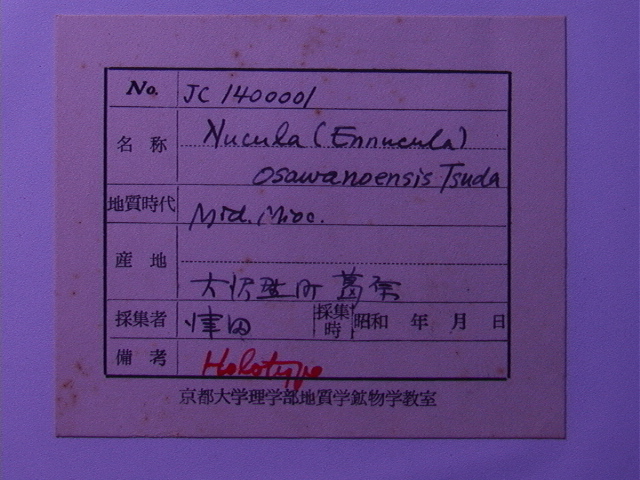 No. JC 1400001
名称 Nucula (Ennucula)
osawanoensis Tsuda
地質時代 Mid. Mioc.
産地
大沢野町 葛原
採集者 津田 採集時 昭和 年 月 日
備考 Holotype
京都大学理学部地質学鉱物学教室